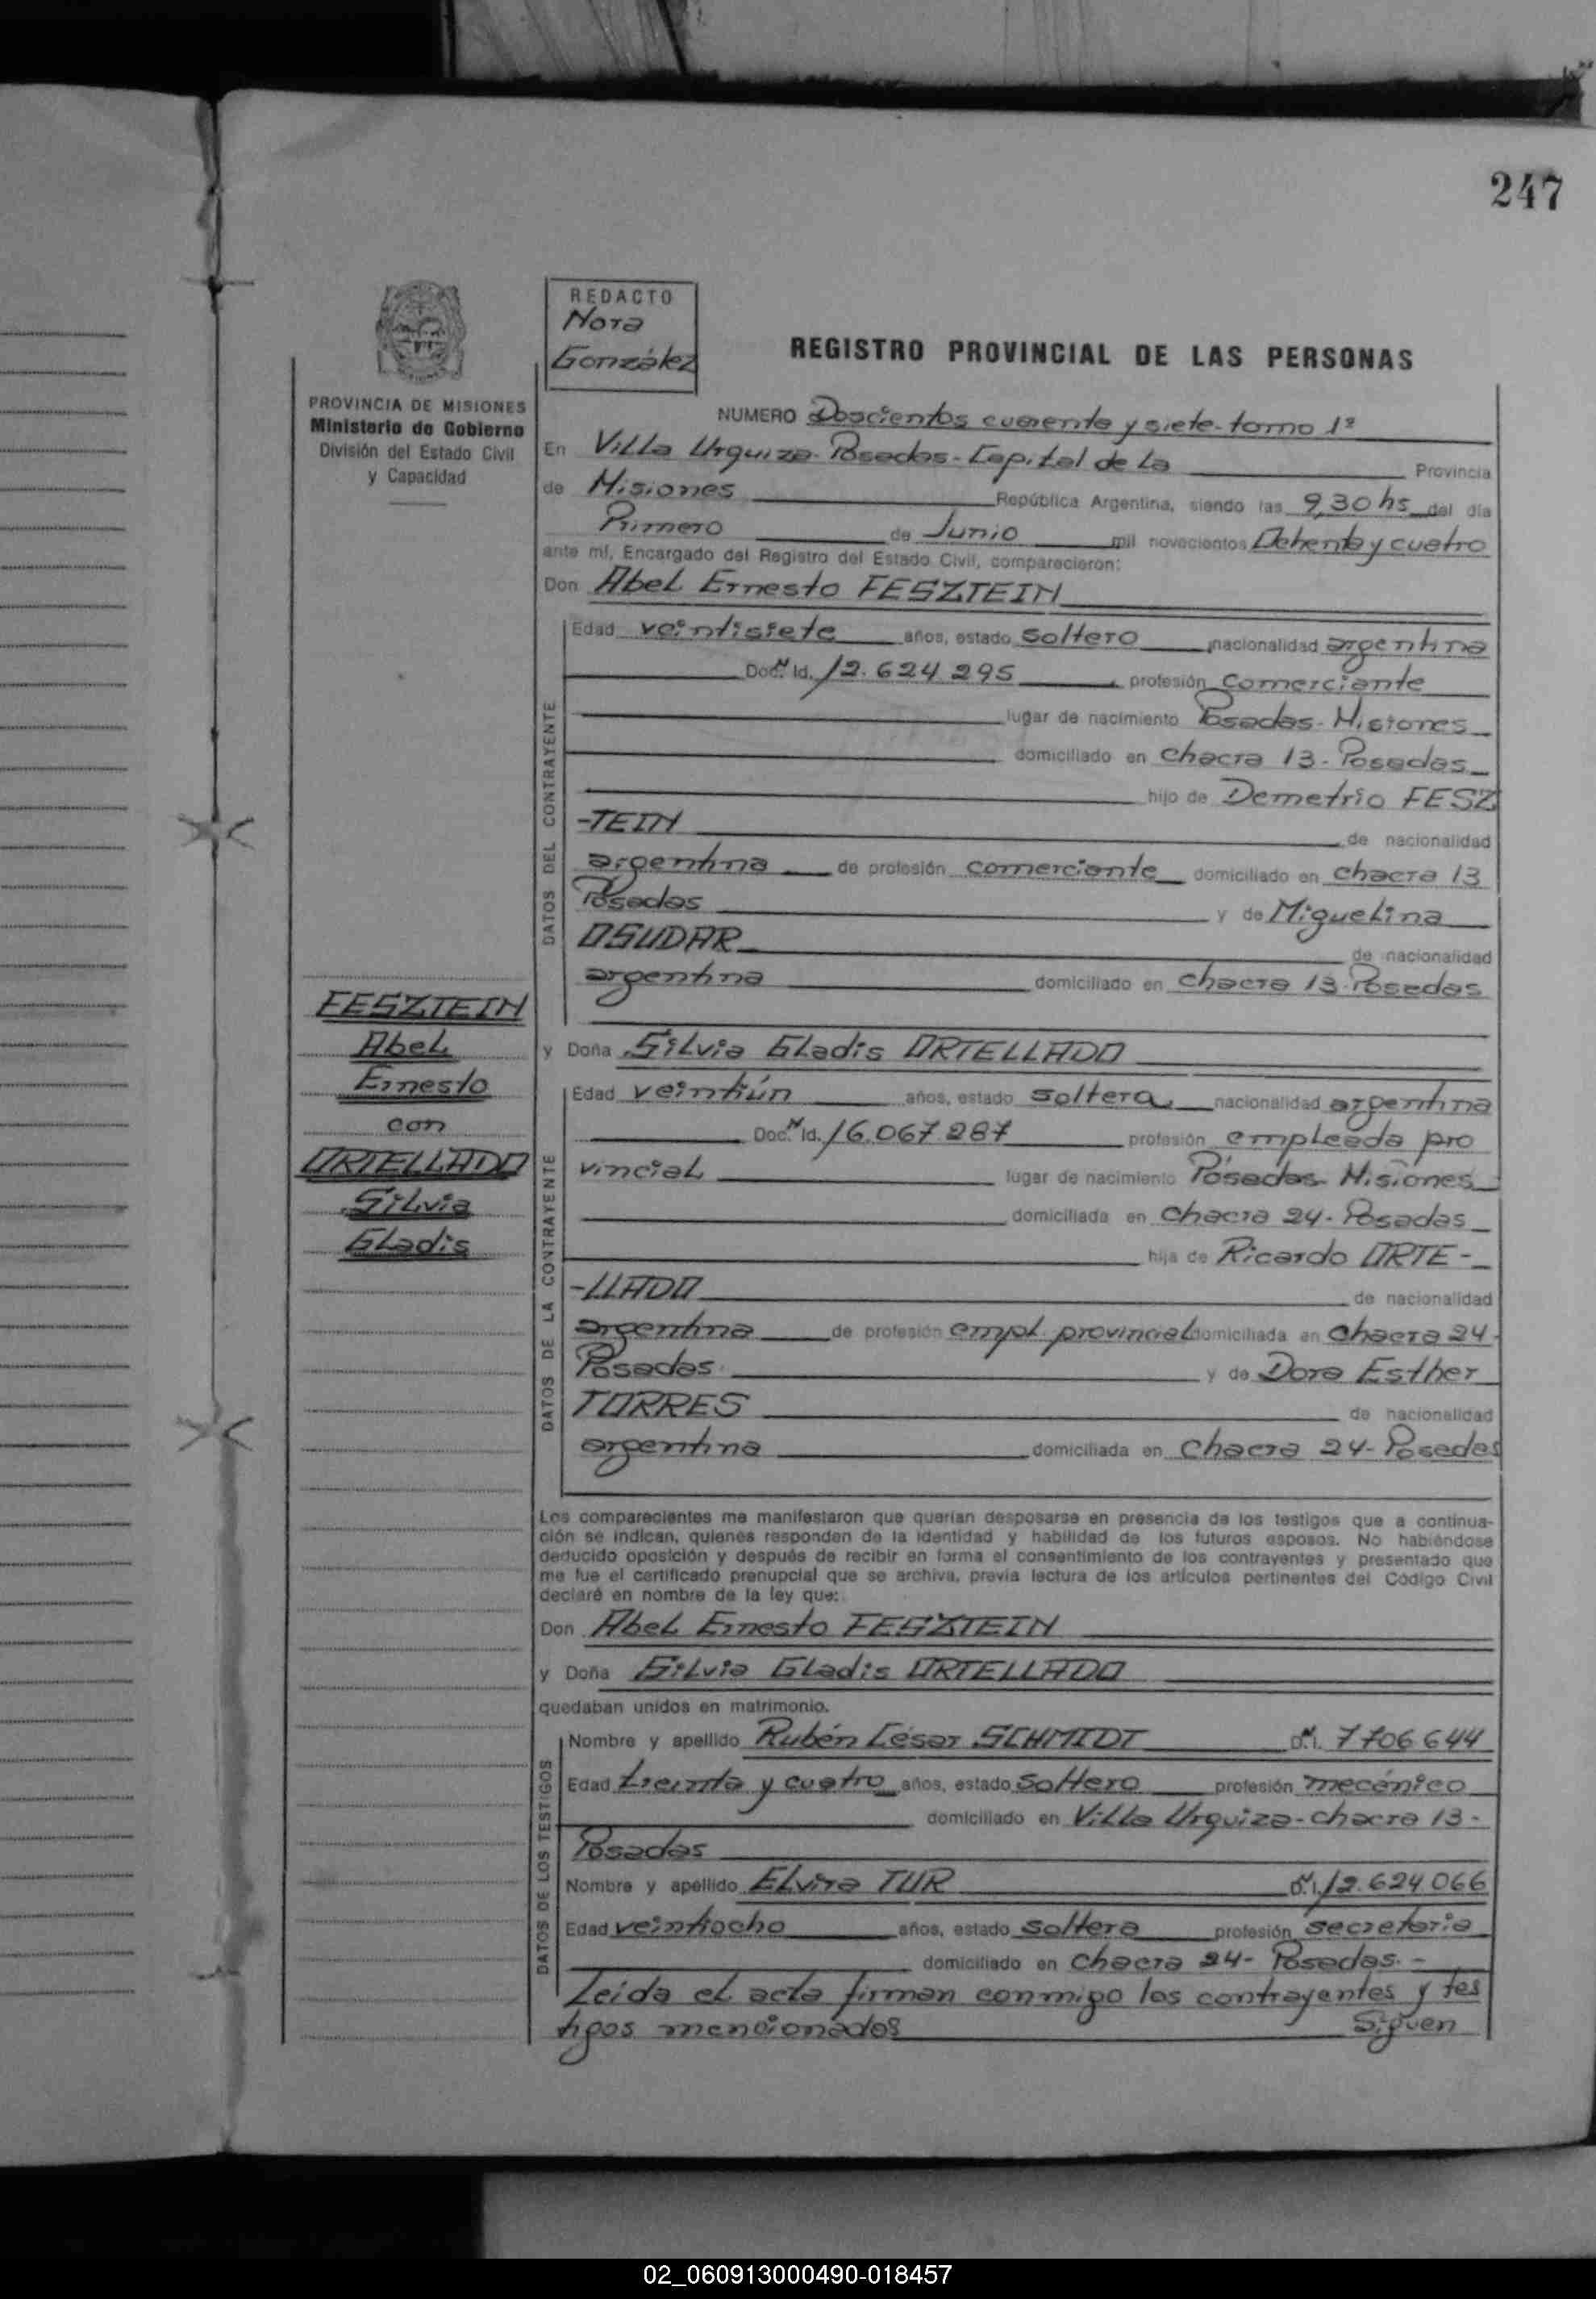 247
REDACTO
Nora
González
REGISTRO PROVINCIAL DE LAS PERSONAS
PROVINCIA DE MISIONES
Ministerio de Gobierno
División del Estado Civil
y Capacidad
NUMERO Doscientos cuarenta y siete - tomo 1º
En Villa Urquiza - Posadas - Capital de La Provincia
de Misiones República Argentina, siendo las 9,30 hs del día
Primero de Junio mil novecientos Ochenta y cuatro
ante mí, Encargado del Registro del Estado Civil, comparecieron:
Don Abel Ernesto FESZTEIN
DATOS DEL CONTRAYENTE
Edad veintisiete años, estado soltero nacionalidad argentina
Doc. N Id. 12.624.295 profesión comerciante
lugar de nacimiento Posadas - Misiones
domiciliado en chacra 13 - Posadas
hijo de Demetrio FESZ
-TEIN de nacionalidad
argentina de profesión comerciante domiciliado en chacra 13
Posadas y de Miguelina
OSUDAR de nacionalidad
argentina domiciliado en chacra 13 - Posadas
FESZTEIN
Abel
Ernesto
con
ORTELLADO
Silvia
Gladis
y Doña Silvia Gladis ORTELLADO
DATOS DE LA CONTRAYENTE
Edad veintiún años, estado soltera nacionalidad argentina
Doc. N Id. 16.067.287 profesión empleada pro
vincial lugar de nacimiento Posadas - Misiones
domiciliada en chacra 24 - Posadas
hija de Ricardo ORTE-
-LLADO de nacionalidad
argentina de profesión empl. provincial domiciliada en chacra 24 -
Posadas y de Dora Esther
TORRES de nacionalidad
argentina domiciliada en chacra 24 - Posadas
Los comparecientes me manifestaron que querían desposarse en presencia de los testigos que a continua-
ción se indican, quienes responden de la identidad y habilidad de los futuros esposos. No habiéndose
deducido oposición y después de recibir en forma el consentimiento de los contrayentes y presentado que
me fue el certificado prenupcial que se archiva, previa lectura de los artículos pertinentes del Código Civil
declaré en nombre de la ley que:
Don Abel Ernesto FESZTEIN
y Doña Silvia Gladis ORTELLADO
quedaban unidos en matrimonio.
DATOS DE LOS TESTIGOS
Nombre y apellido Rubén César SCHMIDT D.N.I. 7706644
Edad treinta y cuatro años, estado soltero profesión mecánico
domiciliado en Villa Urquiza - chacra 13 -
Posadas
Nombre y apellido Elvira TUR D.N.I. 12.624.066
Edad veintiocho años, estado soltera profesión secretaria
domiciliado en chacra 24 - Posadas. -
Leída el acta firman conmigo los contrayentes y tes
tigos mencionados Siguen
02_060913000490-018457